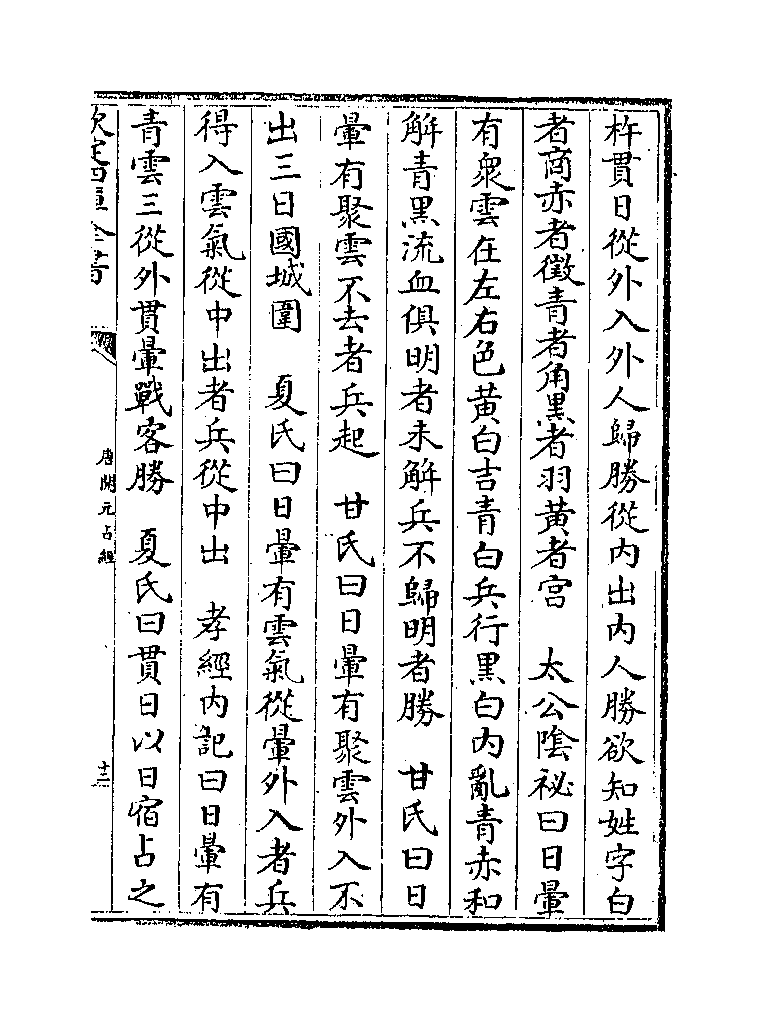 杵貫日從外入外人歸勝從内出内人勝欲知姓字白
者商赤者徵青者角黒者羽黄者宫　太公陰祕曰日暈
有衆雲在左右色黄白吉青白兵行黒白内亂青赤和
解青黒流血俱明者未解兵不歸明者勝　甘氏曰日
暈有聚雲不去者兵起　甘氏曰日暈有聚雲外入不
出三日國城圍　夏氏曰日暈有雲氣從暈外入者兵
得入雲氣從中出者兵從中出　孝經内記曰日暈有
青雲三從外貫暈戰客勝　夏氏曰貫日以日宿占之
欽定四庫全書
唐開元占經
十三